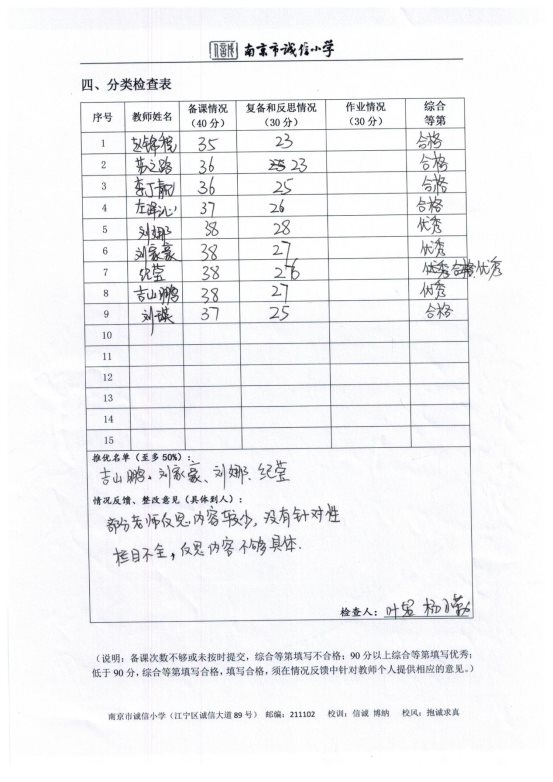 南京市诚信小学
四、分类检查表
序号 教师姓名 备课情况（40分） 复备和反思情况（30分） 作业情况（30分） 综合等第
1 赵锦程 35 23 合格
2 36 23 合格
3 36 25 合格
4 37 26 合格
5 刘娜 38 28 优秀
6 刘家豪 38 27 优秀
7 纪莹 38 26 优秀 合格 优秀
8 吉山鹏 38 27 优秀
9 刘琪 37 25 合格
10
11
12
13
14
15
推优名单（至多50%）：
吉山鹏、刘家豪、刘娜、纪莹
情况反馈、整改意见（具体到人）：
部分老师反思内容较少，没有针对性
栏目不全，反思内容不够具体.
检查人：叶
（说明：备课次数不够或未按时提交，综合等第填写不合格；90分以上综合等第填写优秀；
低于90分，综合等第填写合格，填写合格，须在情况反馈中针对教师个人提供相应的意见。）
南京市诚信小学（江宁区诚信大道89号） 邮编：211102 校训：信诚 博纳 校风：抱诚求真